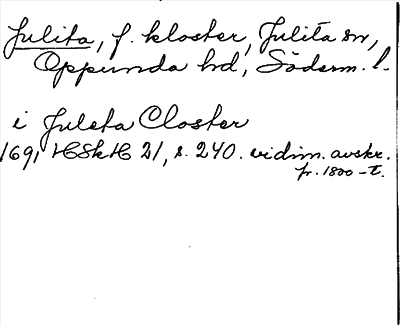 Julita, f. kloster, Julita sn,
Oppunda hd, Söderm. l.
i Juleta Closter
169, HSkH 21, s. 240. vidim. avskr.
fr. 1800-t.